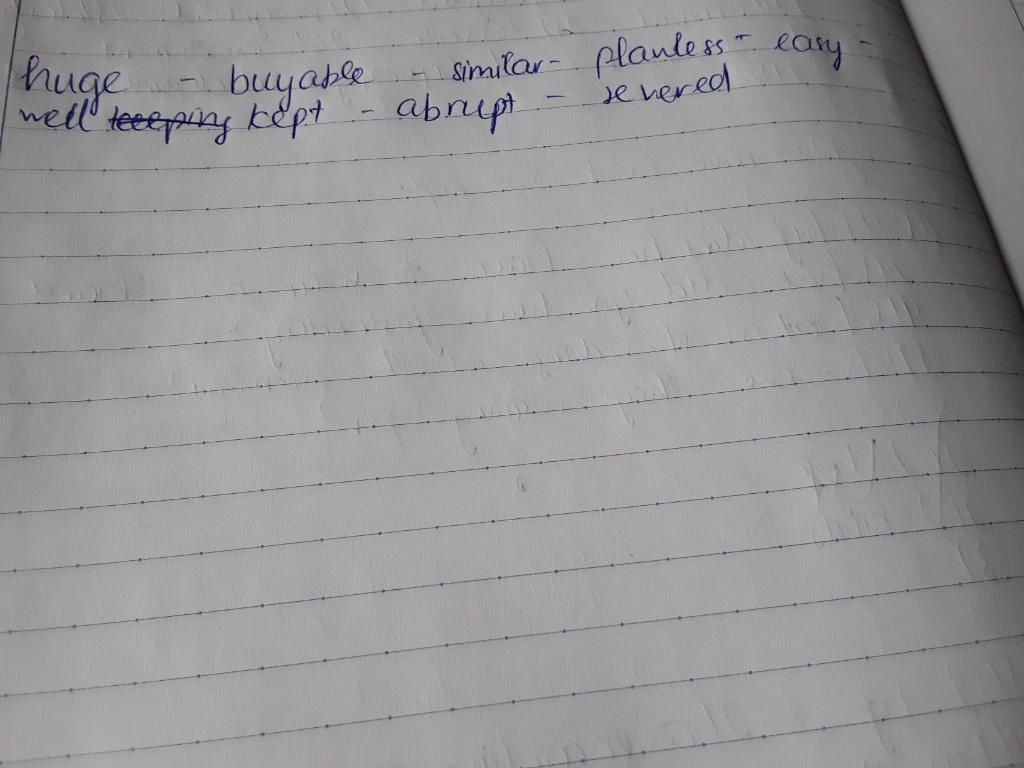 huge - buyable - similar - planless - easy -
well keeping kept - abrupt - severed